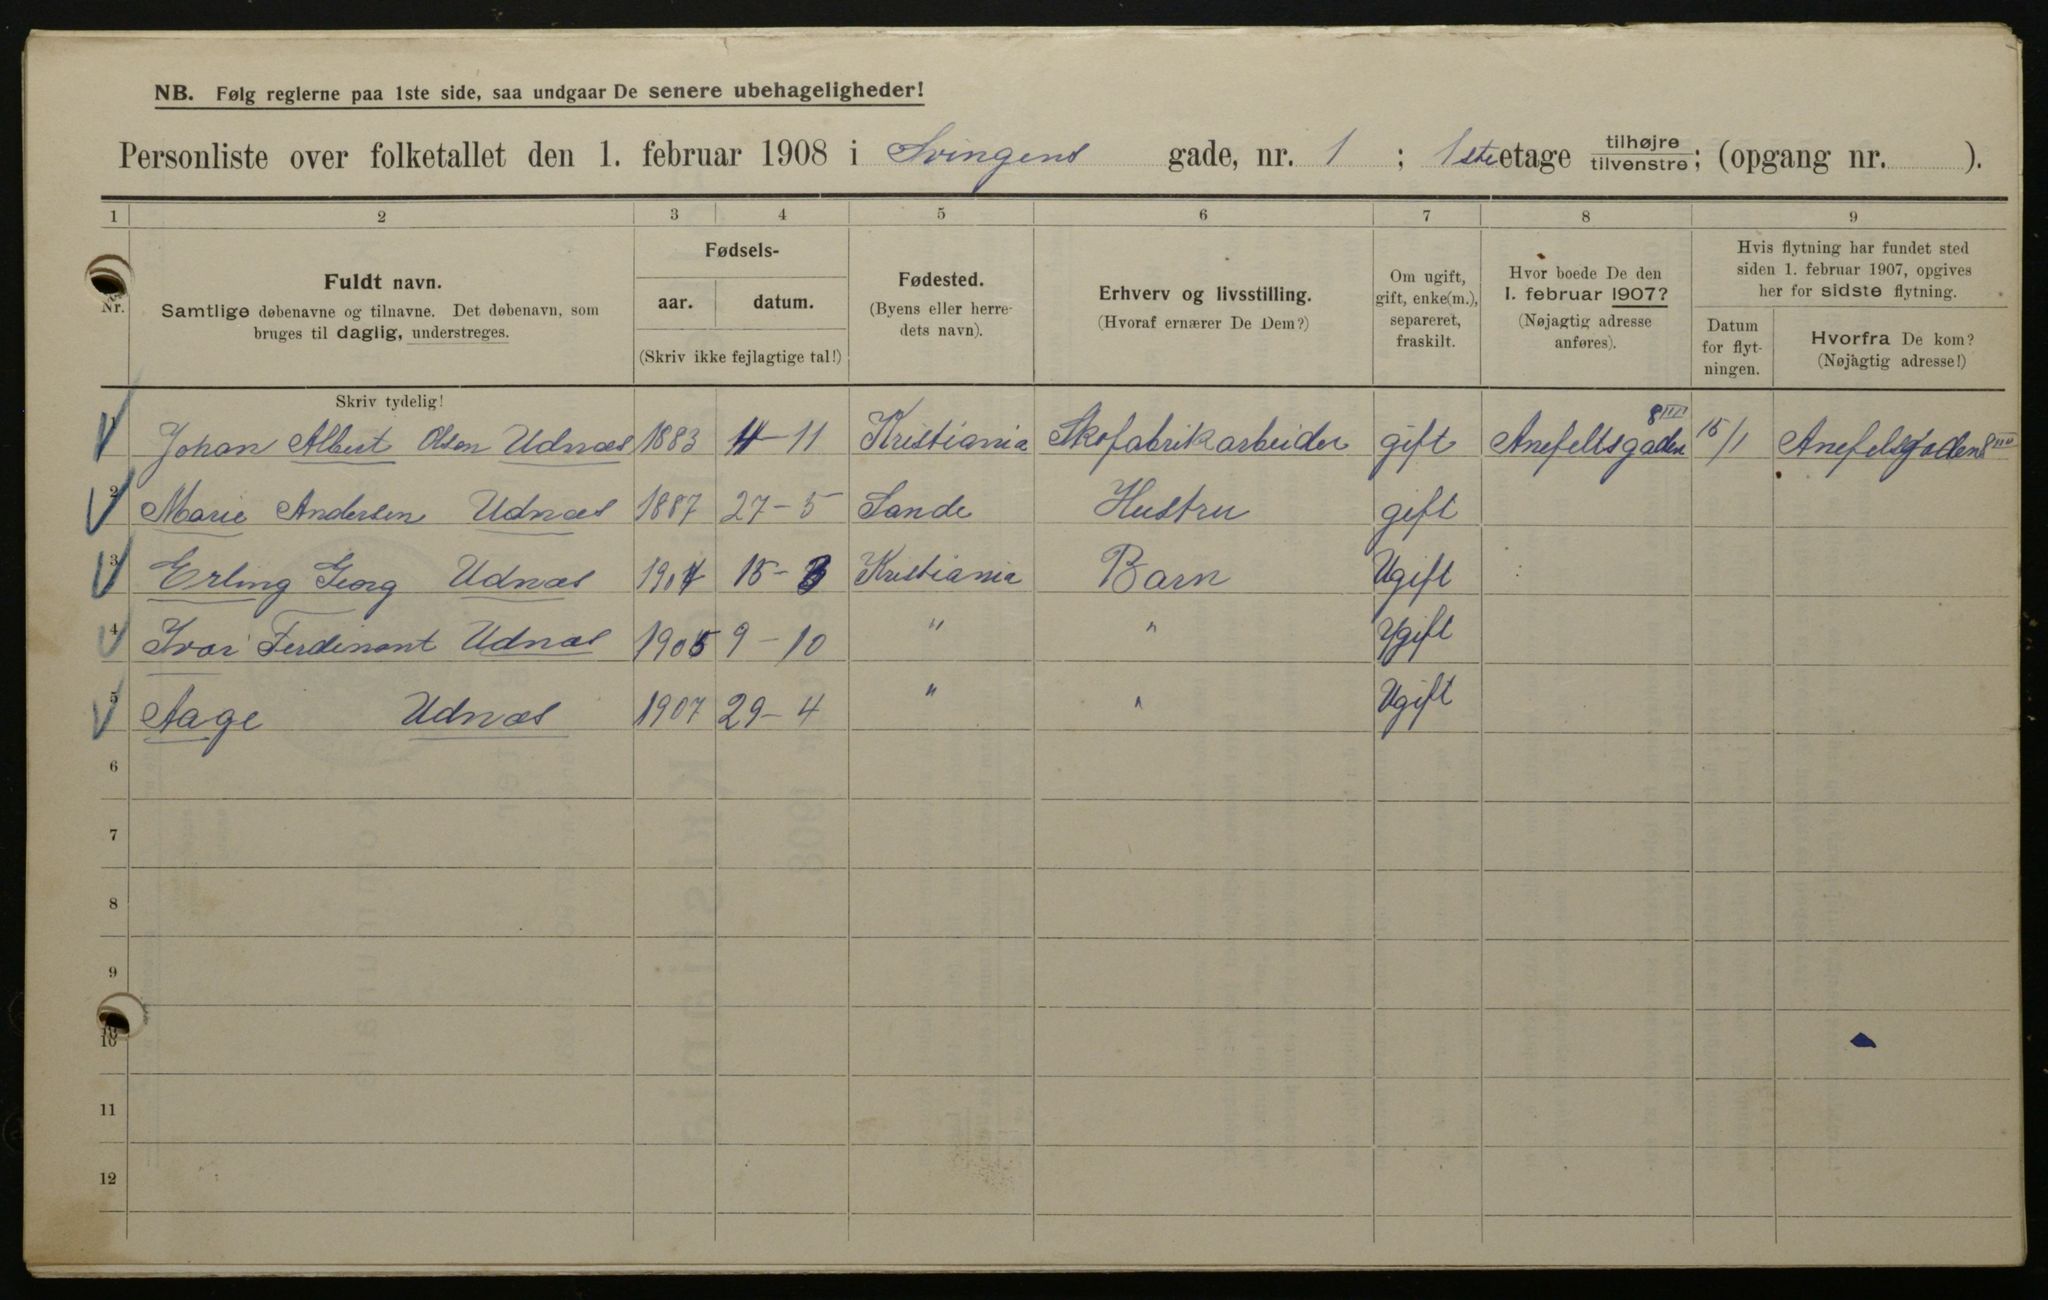 NB. Følg reglerne paa 1ste side, saa undgaar De senere ubehageligheder!
Personliste over folketallet den 1. februar 1908 i Svingens gade, nr. 1 ; 1ste etage tilhøjre tilvenstre; (opgang nr. ).
1 2 3 4 5 6 7 8 9
Nr.
Fuldt navn.
Samtlige døbenavne og tilnavne. Det døbenavn, som
bruges til daglig, understreges.
Skriv tydelig!
Fødsels-
aar. datum.
(Skriv ikke fejlagtige tal!)
Fødested.
(Byens eller herre-
dets navn).
Erhverv og livsstilling.
(Hvoraf ernærer De Dem?)
Om ugift,
gift, enke(m.),
separeret,
fraskilt.
Hvor boede De den
1. februar 1907?
(Nøjagtig adresse
anføres).
Hvis flytning har fundet sted
siden 1. februar 1907, opgives
her for sidste flytning.
Datum
for flyt-
ningen.
Hvorfra De kom?
(Nøjagtig adresse!)
1 Johan Albert Olsen Udnæs 1883 4-11 Kristiania Skofabrikarbeider gift Anefeltsgaden 8 III 15/1 Anefelsgaden 8 III
2 Marie Andersen Udnæs 1887 27-5 Sande Hustru gift
3 Erling Georg Udnæs 1904 15-3 Kristiania Barn Ugift
4 Ivar Ferdinant Udnæs 1905 9-10 " " Ugift
5 Aage Udnæs 1907 29-4 " " Ugift
6
7
8
9
10
11
12